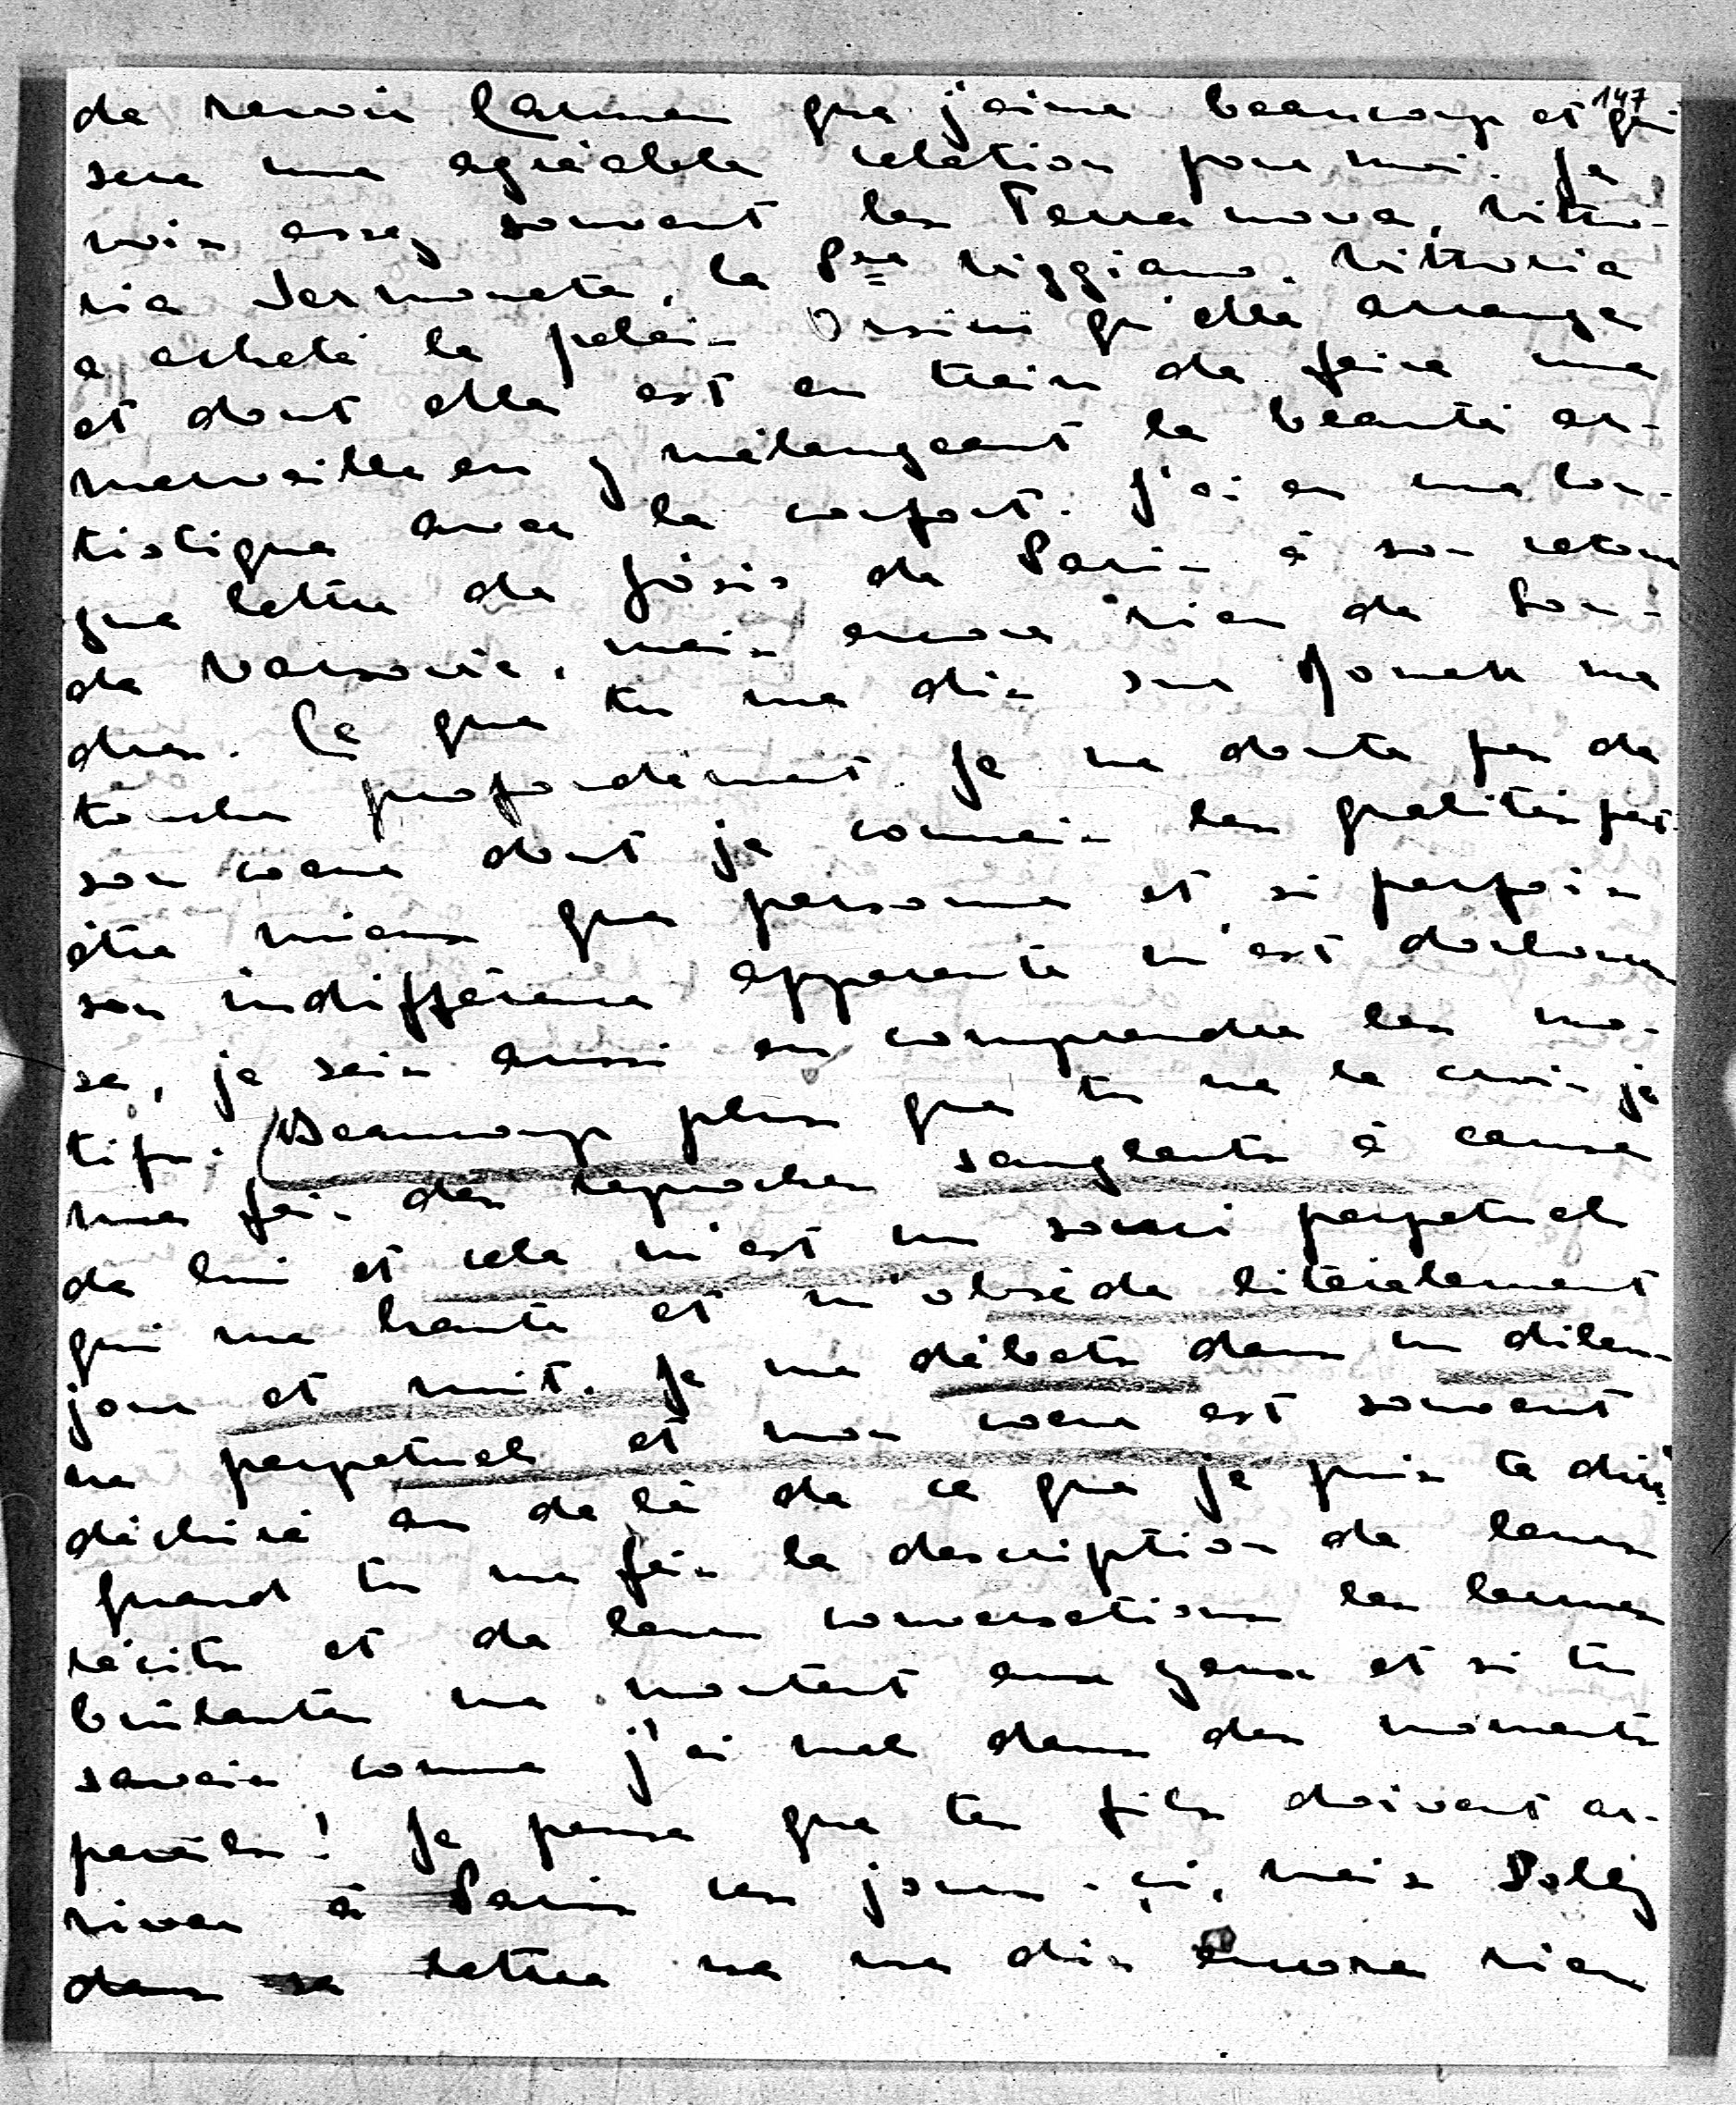 147
de revoir Carmen que j'aime beaucoup et qui
sera une agréable relation pour moi. Je
vois assez souvent les Terranova, Vitto-
ria Sermoneta, la Psse Viggiano. Vittoria
a acheté le palais Orsini qu'elle arrange
et dont elle est en train de faire une
merveille en y mélangeant la beauté ar-
tistique avec le confort. J'ai eu une lon-
gue lettre de Józio de Paris à son retour
de Varsovie, mais encore rien de Lon-
dres. Ce que tu me dis sur me
touche profondément. Je ne doute pas de
son coeur dont je connais les qualités peut-
être mieux que personne et si parfois
son indifférence apparente m'est douloureu-
se, je sais aussi en comprendre les mo-
tifs. (Beaucoup plus que tu ne le crois je
me fais des reproches sanglants à cause
de lui et cela m'est un souci perpétuel
qui me hante et m'obsède litéralement
jour et nuit. Je me débats dans un dilem-
ne perpetuel et mon coeur est souvent
déchiré au delà de ce que je puis te dire.
Quand tu me fais la description de leurs
récits et de leurs conversations les larmes
brûlantes me montent aux yeux et si tu
savais comme j'ai mal dans des moments
pareils! Je pense que tes fils doivent ar-
river à Paris ces jours-çi, mais Dolly
dans sa lettre ne me dis encore rien